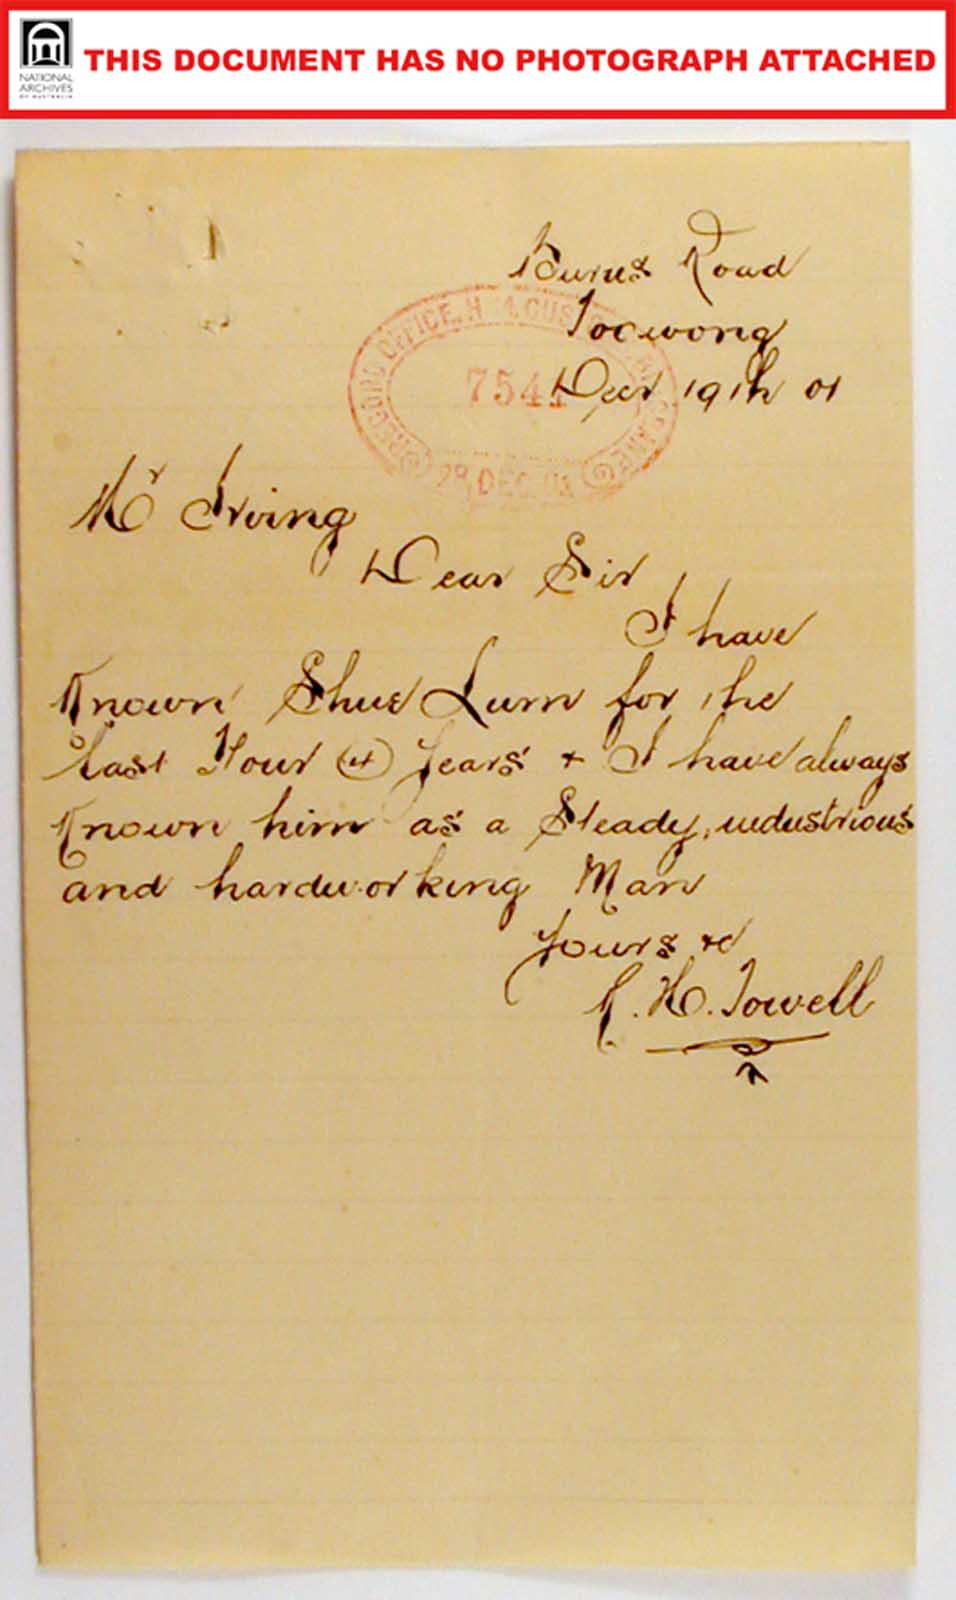 NATIONAL
ARCHIVES
OF AUSTRALIA
THIS DOCUMENT HAS NO PHOTOGRAPH ATTACHED
Burns Road
Toowong
Decr 19th 01
RECORD OFFICE, H.M. CUSTOMS, BRISBANE
754
28 DEC 01
Mr Irving
Dear Sir
I have
Known Shue Lum for the
last Four (4) Years & I have always
Known him as a Steady, industrious
and hardworking Man
Yours &c
R. H. Towell